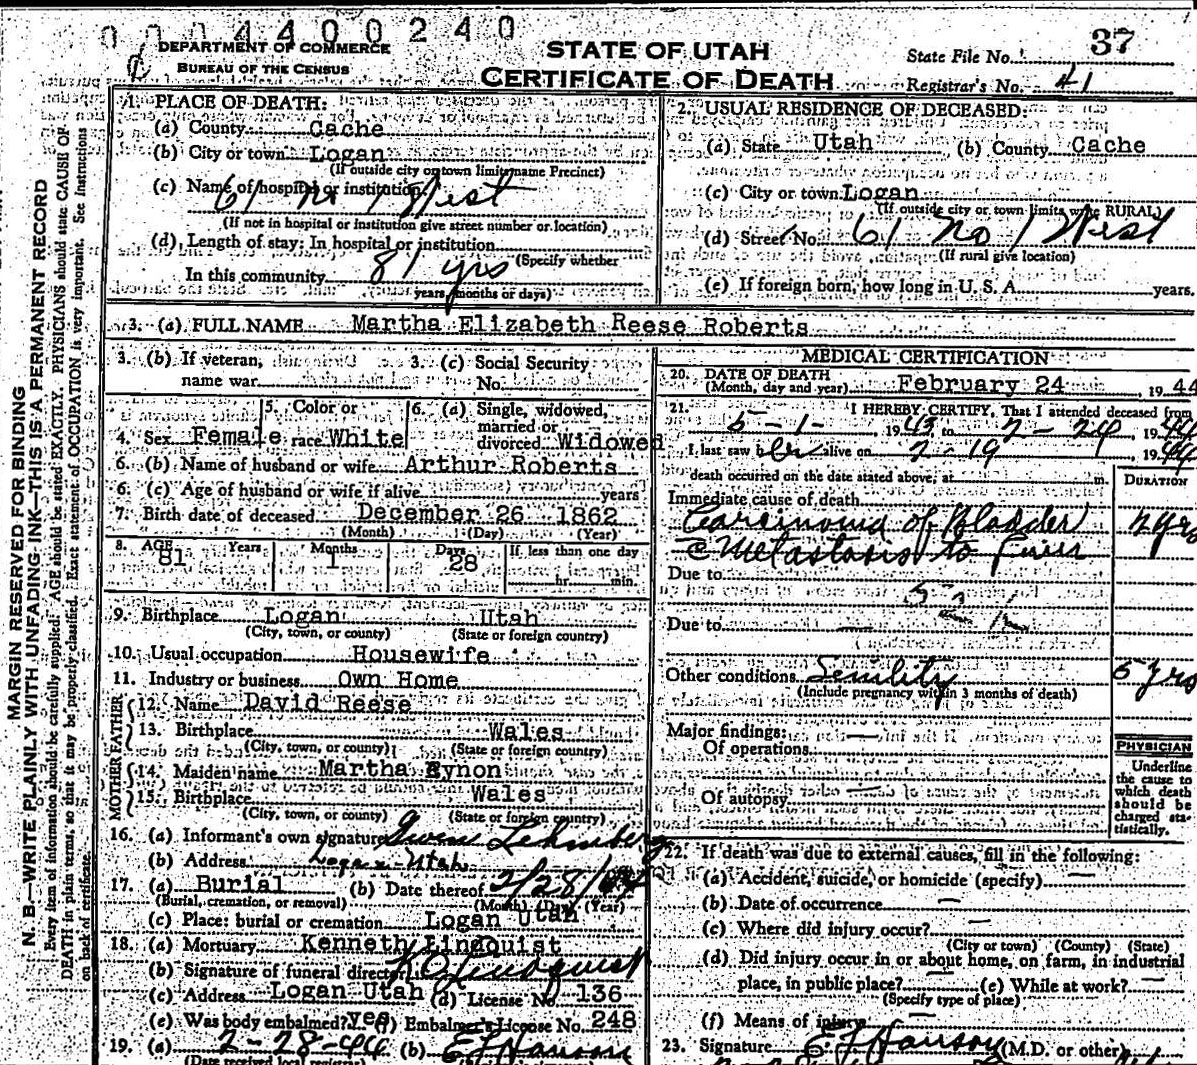 0004400240
DEPARTMENT OF COMMERCE
BUREAU OF THE CENSUS
STATE OF UTAH
CERTIFICATE OF DEATH
State File No. 37
Registrar's No. 41
MARGIN RESERVED FOR BINDING
N. B.—WRITE PLAINLY WITH UNFADING INK—THIS IS A PERMANENT RECORD
Every item of information should be carefully supplied. AGE should be stated EXACTLY. PHYSICIANS should state CAUSE OF
DEATH in plain terms, so that it may be properly classified. Exact statement of OCCUPATION is very important. See instructions
on back of certificate.
1. PLACE OF DEATH:
(a) County Cache
(b) City or town Logan
(If outside city or town limits name Precinct)
(c) Name of hospital or institution:
61 No 1 West
(If not in hospital or institution give street number or location)
(d) Length of stay: In hospital or institution
(Specify whether
In this community 81 yrs
years, months or days)
2. USUAL RESIDENCE OF DECEASED:
(a) State Utah (b) County Cache
(c) City or town Logan
(If outside city or town limits write RURAL)
(d) Street No. 61 No 1 West
(If rural give location)
(e) If foreign born, how long in U. S. A. years.
3. (a) FULL NAME Martha Elizabeth Reese Roberts
3. (b) If veteran, name war
3. (c) Social Security No.
4. Sex Female
5. Color or race White
6. (a) Single, widowed, married or divorced Widowed
6. (b) Name of husband or wife Arthur Roberts
6. (c) Age of husband or wife if alive years
7. Birth date of deceased December 26 1862
(Month) (Day) (Year)
8. AGE Years Months Days If less than one day
81 1 28 hr. min.
9. Birthplace Logan Utah
(City, town, or county) (State or foreign country)
10. Usual occupation Housewife
11. Industry or business Own Home
FATHER
12. Name David Reese
13. Birthplace Wales
(City, town, or county) (State or foreign country)
MOTHER
14. Maiden name Martha Eynon
15. Birthplace Wales
(City, town, or county) (State or foreign country)
16. (a) Informant's own signature Gwen Lehmberg
(b) Address Logan-Utah
17. (a) Burial (b) Date thereof 2/28/44
(Burial, cremation, or removal) (Month) (Day) (Year)
(c) Place: burial or cremation Logan Utah
18. (a) Mortuary Kenneth Lindquist
(b) Signature of funeral director Lindquist
(c) Address Logan Utah (d) License No. 136
(e) Was body embalmed? yes (f) Embalmer's License No. 248
19. (a) 2-28-44 (b) E F Hanson
(Date received local registrar)
MEDICAL CERTIFICATION
20. DATE OF DEATH
(Month, day and year) February 24, 1944
21. I HEREBY CERTIFY, That I attended deceased from
5-1-, 1943 to 2-24, 1944
I last saw her alive on 2-19, 1944
death occurred on the date stated above, at m.
DURATION
Immediate cause of death
Carcinoma of Bladder 2 yrs
c Metastasis to Liver
Due to
52
Due to
Other conditions Senility 5 yrs
(Include pregnancy within 3 months of death)
Major findings:
Of operations
Of autopsy
PHYSICIAN
Underline
the cause to
which death
should be
charged sta-
tistically.
22. If death was due to external causes, fill in the following:
(a) Accident, suicide, or homicide (specify) —
(b) Date of occurrence —
(c) Where did injury occur? —
(City or town) (County) (State)
(d) Did injury occur in or about home, on farm, in industrial
place, in public place? — (e) While at work? —
(Specify type of place)
(f) Means of injury —
23. Signature E F Hanson (M.D. or other)